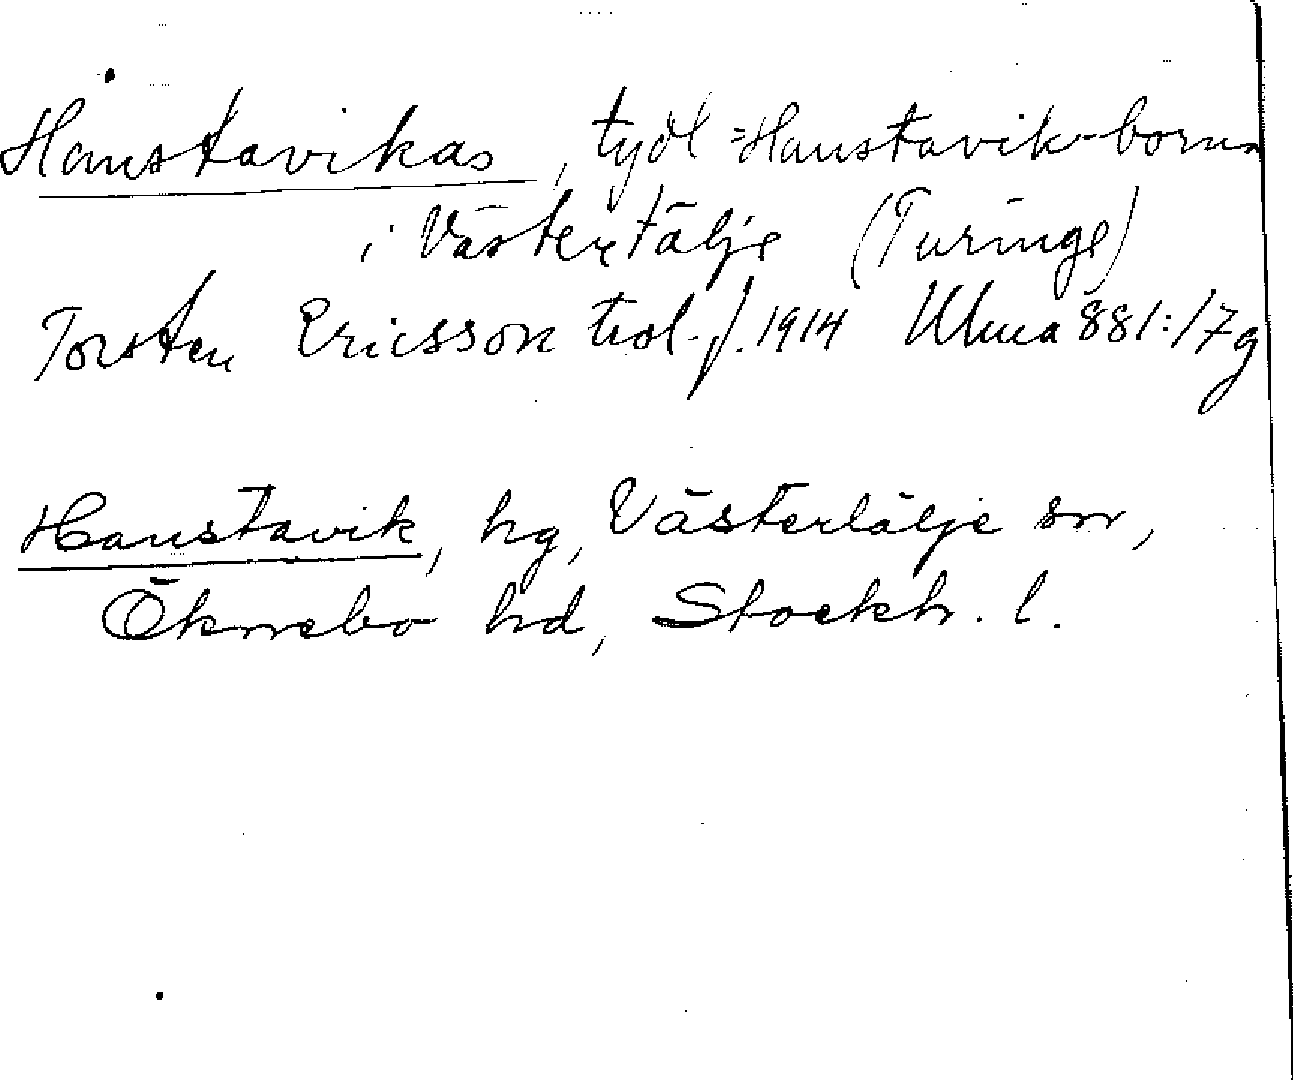 Hanstavikas, tydl =Hanstavik-borna
i Västertälje (Turinge)
Torsten Ericsson trol. f. 1914 Uma 881:17g
Hanstavik, hg, Västertälje sn,
Öknebo hd, Stockh. l.